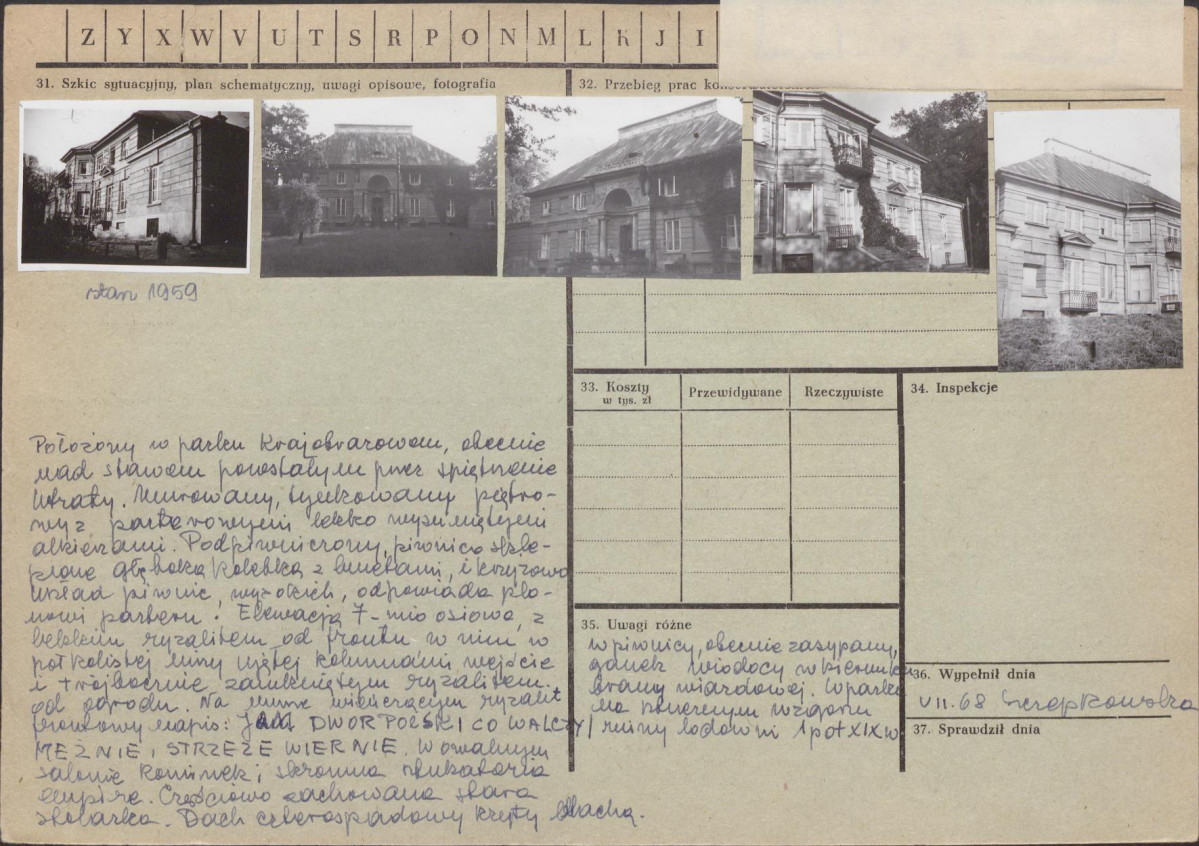 Z Y X W V U T S R P O N M L K J I
31. Szkic sytuacyjny, plan schematyczny, uwagi opisowe, fotografia
32. Przebieg prac
stan 1959
Położony w parku krajobrazowem, obecnie
nad stawem powstałym przez spiętrzenie
Utraty. Murowany, tynkowany piętro-
wy z parterowymi lekko wysuniętymi
alkierzami. Podpiwniczony, piwnice skle-
pione głęboką kolebką z lunetami, i krzyżowo
układ piwnic, wysokich, odpowiada pla-
nowi parteru. Elewacja 7-mio osiowa, z
lekkim ryzalitem od frontu w nim w
półkolistej niszy ujętej kolumnami wejście
i trójbocznie zamkniętym ryzalitem
od ogrodu. Na murze wieńczącym ryzalit
frontowy napis: JAM DWÓR POLSKI CO WALCZY
MĘŻNIE I STRZEŻE WIERNIE. W owalnym
salonie kominek i skromna stiukatoria
empire. Częściowo zachowana stara
stolarka. Dach czterospadowy kryty blachą.
33. Koszty
w tys. zł
Przewidywane
Rzeczywiste
34. Inspekcje
35. Uwagi różne
w piwnicy, obecnie zasypany,
ganek wiodący w kierunku
bramy wjazdowej. W parku
na wzgórzu
ruiny lodowni 1 poł XIX w.
36. Wypełnił dnia
VII. 68
37. Sprawdził dnia